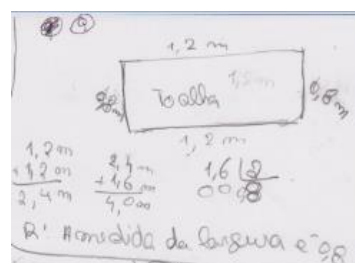 a
1,2 m
0,8 m Toalha 0,8 m
1,2 m
1,2 m
+ 1,2 m
2,4 m
2,4 m
+ 1,6 m
4,0 m
1,6 | 2
00 0,8
R: A medida da largura é 0,8